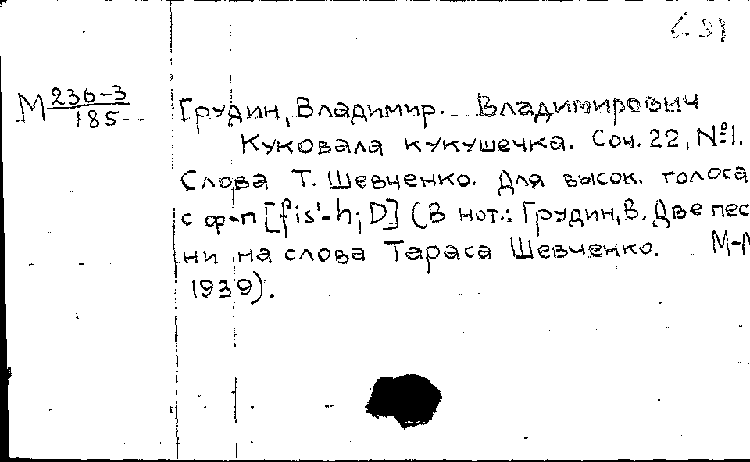 М 236-3
185
Грудин, Владимир. Владимирович
Куковала кукушечка. Соч. 22, №1.
Слова Т. Шевченко. Для высок. голоса
с ф-п [fis'-h; D] (В нот.: Грудин, В. Две пес
ни на слова Тараса Шевченко. М-
1939).